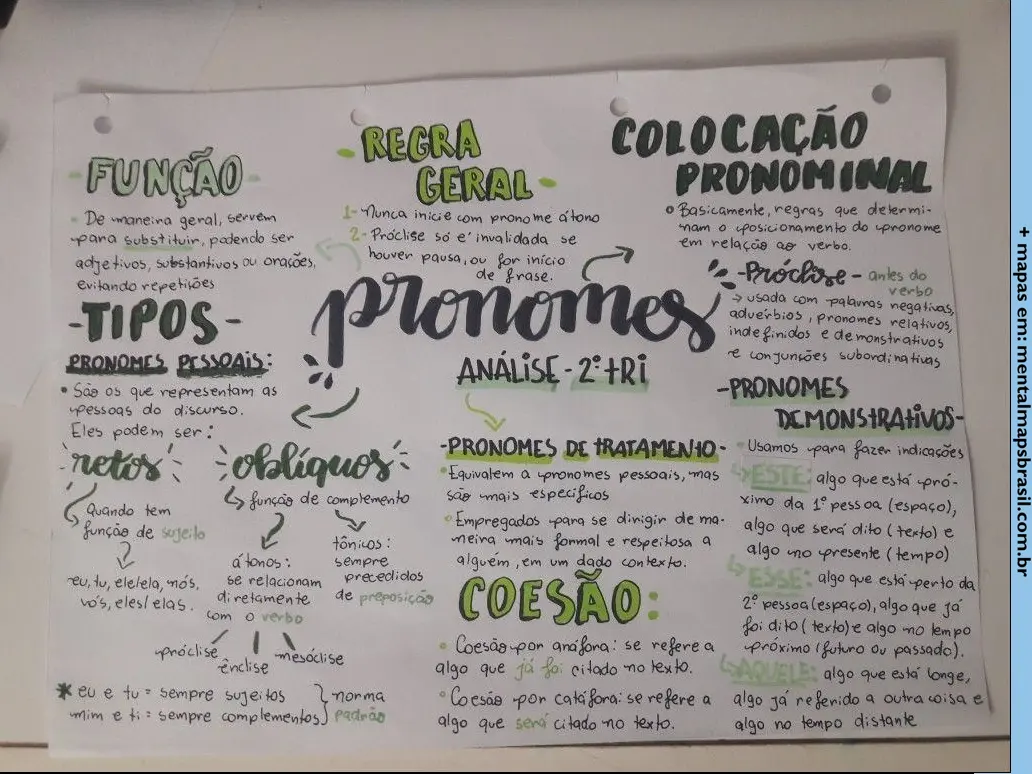 FUNÇÃO
De maneira geral, servem
para substituir, podendo ser
adjetivos, substantivos ou orações,
evitando repetições
REGRA
GERAL
1- Nunca inicie com pronome átono
2- Próclise só é invalidada se
houver pausa, ou for início
de frase.
COLOCAÇÃO
PRONOMINAL
Basicamente, regras que determi-
nam o posicionamento do pronome
em relação ao verbo.
Próclise - antes do
verbo
→ usada com palavras negativas,
advérbios, pronomes relativos,
indefinidos e demonstrativos
e conjunções subordinativas
pronomes
ANÁLISE - 2º TRI
-TIPOS-
PRONOMES PESSOAIS:
• São os que representam as
pessoas do discurso.
Eles podem ser:
retos
Quando tem
função de sujeito
eu, tu, ele/ela, nós,
vós, eles/elas.
oblíquos
função de complemento
átonos:
se relacionam
diretamente
com o verbo
próclise
ênclise
mesóclise
tônicos:
sempre
precedidos
de preposição
* eu e tu = sempre sujeitos
mim e ti = sempre complementos
norma
padrão
-PRONOMES DE TRATAMENTO-
Equivalem a pronomes pessoais, mas
são mais específicos
Empregados para se dirigir de ma-
neira mais formal e respeitosa a
alguém, em um dado contexto.
COESÃO:
Coesão por anáfora: se refere a
algo que já foi citado no texto.
Coesão por catáfora: se refere a
algo que será citado no texto.
-PRONOMES
DEMONSTRATIVOS-
Usamos para fazer indicações
ESTE: algo que está pró-
ximo da 1º pessoa (espaço),
algo que será dito (texto) e
algo no presente (tempo)
ESSE: algo que está perto da
2º pessoa (espaço), algo que já
foi dito (texto) e algo no tempo
próximo (futuro ou passado).
AQUELE: algo que está longe,
algo já referido a outra coisa e
algo no tempo distante
+ mapas em: mentalmapsbrasil.com.br